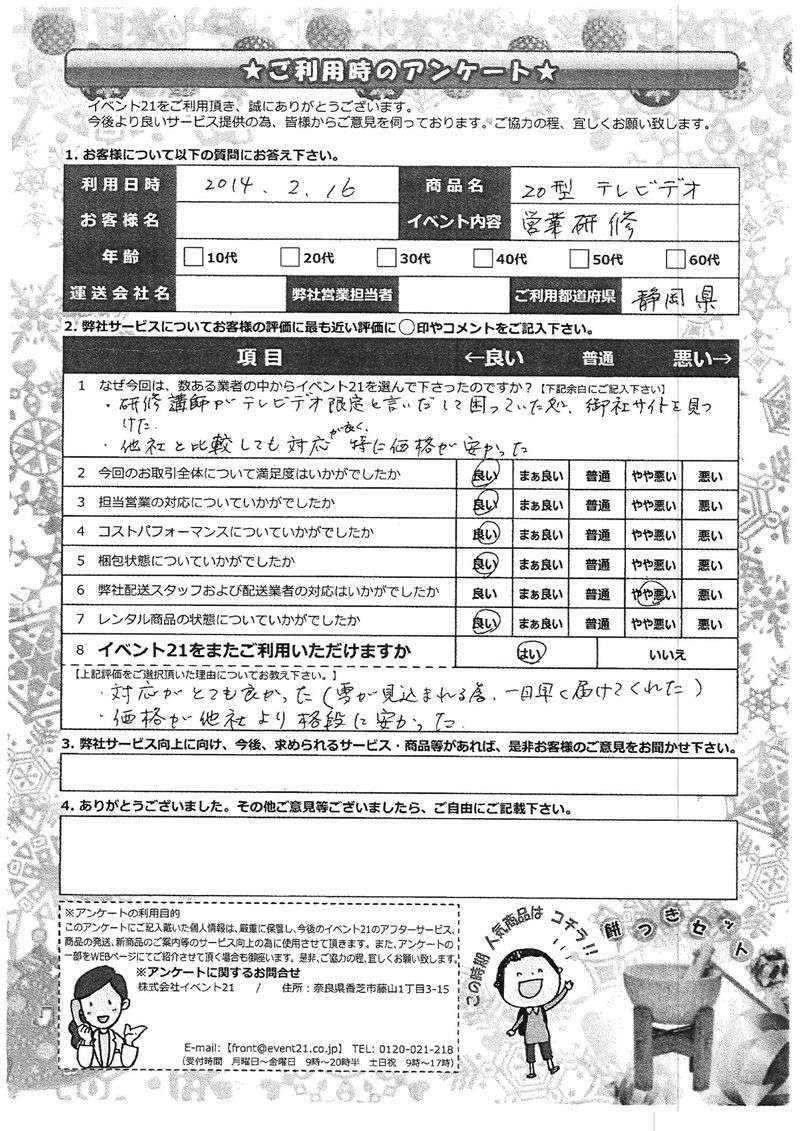 ★ご利用時のアンケート★
イベント21をご利用頂き、誠にありがとうございます。
今後より良いサービス提供の為、皆様からご意見を伺っております。ご協力の程、宜しくお願い致します。
1. お客様について以下の質問にお答え下さい。
利用日時 2014.2.16 商品名 20型 テレビデオ
お客様名 イベント内容 営業研修
年齢 □10代 □20代 □30代 □40代 □50代 □60代
運送会社名 弊社営業担当者 ご利用都道府県 静岡県
2. 弊社サービスについてお客様の評価に最も近い評価に○印やコメントをご記入下さい。
項目 ←良い 普通 悪い→
1 なぜ今回は、数ある業者の中からイベント21を選んで下さったのですか?【下記余白にご記入下さい】
・研修講師がテレビデオ限定と言いだして困っていた処、御社サイトを見つ
けた.
・他社と比較しても対応が良く、特に価格が安かった
2 今回のお取引全体について満足度はいかがでしたか 良い まぁ良い 普通 やや悪い 悪い
3 担当営業の対応についていかがでしたか 良い まぁ良い 普通 やや悪い 悪い
4 コストパフォーマンスについていかがでしたか 良い まぁ良い 普通 やや悪い 悪い
5 梱包状態についていかがでしたか 良い まぁ良い 普通 やや悪い 悪い
6 弊社配送スタッフおよび配送業者の対応はいかがでしたか 良い まぁ良い 普通 やや悪い 悪い
7 レンタル商品の状態についていかがでしたか 良い まぁ良い 普通 やや悪い 悪い
8 イベント21をまたご利用いただけますか はい いいえ
【上記評価をご選択頂いた理由についてお教え下さい。】
・対応がとても良かった(雪が見込まれる為、一日早く届けてくれた)
・価格が他社より格段に安かった.
3. 弊社サービス向上に向け、今後、求められるサービス・商品等があれば、是非お客様のご意見をお聞かせ下さい。
4. ありがとうございました。その他ご意見等ございましたら、ご自由にご記載下さい。
※アンケートの利用目的
このアンケートにご記入戴いた個人情報は、厳重に保管し、今後のイベント21のアフターサービス、
商品の発送、新商品のご案内等のサービス向上の為に使用させて頂きます。また、アンケートの
一部をWEBページにてご紹介させて頂く場合も御座います。是非、ご協力の程、宜しくお願い致します。
※アンケートに関するお問合せ
株式会社イベント21 / 住所:奈良県香芝市藤山1丁目3-15
E-mail:【front@event21.co.jp】 TEL: 0120-021-218
(受付時間 月曜日～金曜日 9時～20時半 土日祝 9時～17時)
この時期 人気商品は コチラ!!
餅つきセット